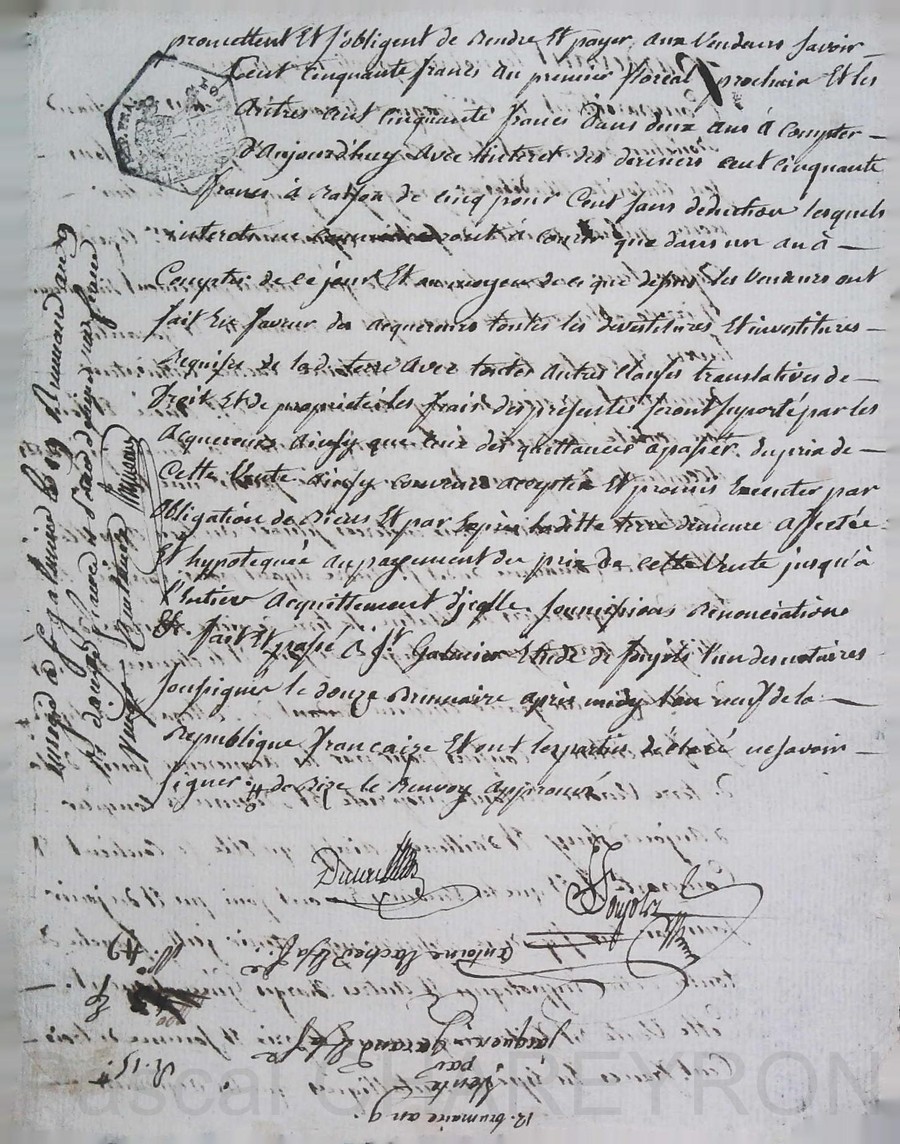 promettent Et s'obligent de Rendre Et payer aux Vendeurs savoir
Cent cinquante francs au premier floréal prochain Et les
Autres cent cinquante francs dans deux ans à compter
D'Aujourdhuy Avec Interet des derniers cent cinquante
francs à Raison de cinq pour Cent sans deduction lesquels
interets ne à courir que dans un an à
Compter de ce jour Et au moyen de ce que dessus les Vendeurs ont
fait En faveur des acquereurs toutes les devestitures Et investitures
Requise de lad. terre Avec toutes Autres Clauses translatives de
Droit Et de proprieté. les frais des presentes seront suporté par les
Acquereurs Ainsy que ceux des quittances à passer du prix de
Cette Vente Ainsy convenu accepté Et promis Executer par
Obligation de Biens Et par Exprès laditte terre demeure Affectée
Et hypotequée au payement du prix de cette Vente jusqu'à
l'Entier Acquittement d'jcelle. soumissions Renonciations
&c. fait Et passé à St. Galmier Etude de Pujols l'un des notaires
soussignés le douze Brumaire après midy l'an neuf de la
Republique française Et ont les parties declaré ne savoir
signer de Rize le Renvoy Approuvé
à Galmier le 19 Brumaire an 9
francs
antoine
jacquemin
par
Vente
R. 15
12. brumaire an 9.
Pascal CHAREYRON